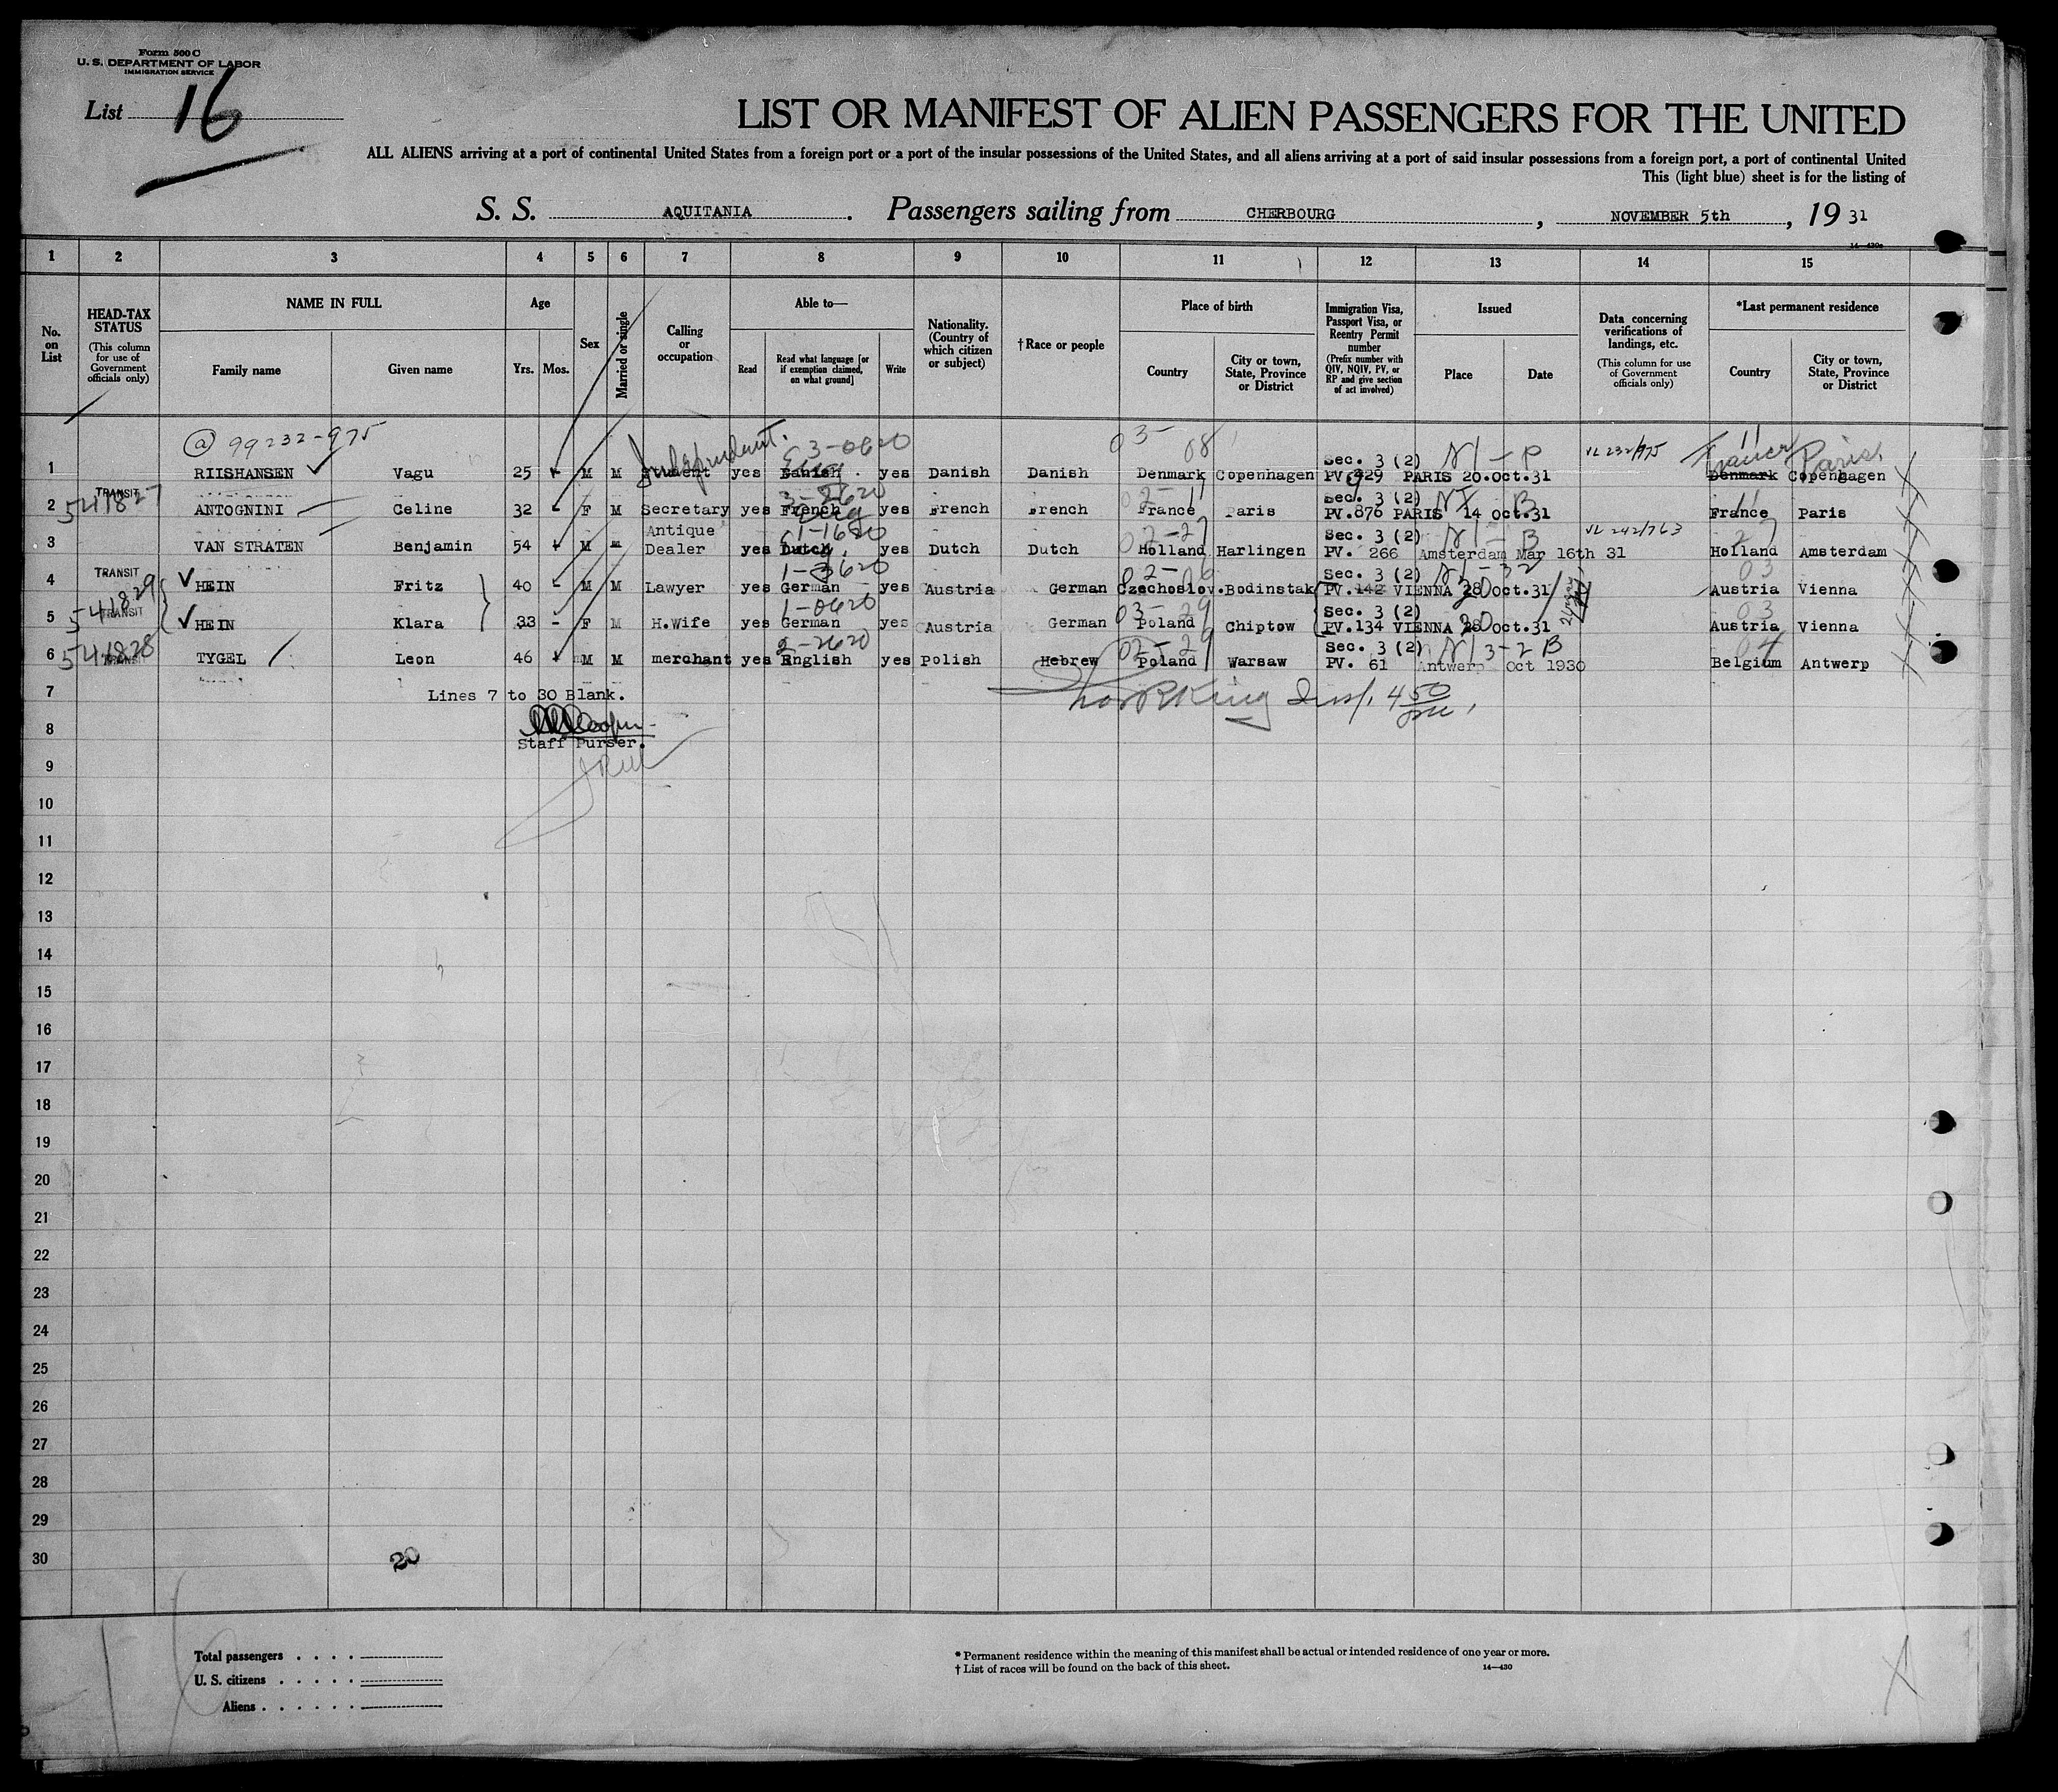 Form 500 C
U. S. DEPARTMENT OF LABOR
IMMIGRATION SERVICE
List 16
LIST OR MANIFEST OF ALIEN PASSENGERS FOR THE UNITED
ALL ALIENS arriving at a port of continental United States from a foreign port or a port of the insular possessions of the United States, and all aliens arriving at a port of said insular possessions from a foreign port, a port of continental United
This (light blue) sheet is for the listing of
S. S. AQUITANIA. Passengers sailing from CHERBOURG, NOVEMBER 5th, 19 31
1 2 3 4 5 6 7 8 9 10 11 12 13 14 15
No. on List
HEAD-TAX STATUS
(This column for use of Government officials only)
NAME IN FULL
Family name Given name
Age
Yrs. Mos.
Sex
Married or single
Calling or occupation
Able to—
Read Read what language [or if exemption claimed, on what ground] Write
Nationality. (Country of which citizen or subject)
†Race or people
Place of birth
Country City or town, State, Province or District
Immigration Visa, Passport Visa, or Reentry Permit number
(Prefix number with QIV, NQIV, PV, or RP and give section of act involved)
Issued
Place Date
Data concerning verifications of landings, etc.
(This column for use of Government officials only)
*Last permanent residence
Country City or town, State, Province or District
@ 99232-975 Independent. 3-0620 03- 08 Sec. 3 (2) N1-P VL 232/975 11 Paris
1 RIISHANSEN Vagu 25 M M yes Danish yes Danish Danish Denmark Copenhagen PV. 929 PARIS 20.oct.31 Denmark Copenhagen
TRANSIT 541827 Sec. 3 (2)
2 ANTOGNINI Celine 32 F M Secretary yes French yes French French France Paris PV.876 PARIS 14 Oct.31 France Paris
Antique 1-1620 02-27 Sec. 3 (2) N1-B VL 242/763 27
3 VAN STRATEN Benjamin 54 M M Dealer yes Dutch yes Dutch Dutch Holland Harlingen PV. 266 Amsterdam Mar 16th 31 Holland Amsterdam
TRANSIT 541829 1-3620 02-06 Sec. 3 (2) N1-32 03
4 HEIN Fritz 40 M M Lawyer yes German yes Austria German Czechoslov. Bodinstak PV. 142 VIENNA 28 Oct.31 Austria Vienna
TRANSIT 1-0620 03-29 Sec. 3 (2) 03
5 HEIN Klara 33 - F M H.Wife yes German yes Austria German Poland Chiptow PV.134 VIENNA 28 Oct.31 Austria Vienna
541828 2-2620 02-29 Sec. 3 (2) N13-2B 04
6 TYGEL Leon 46 M M merchant yes English yes Polish Hebrew Poland Warsaw PV. 61 Antwerp Oct 1930 Belgium Antwerp
7 Lines 7 to 30 Blank. King Insp.
8
Staff Purser.
9
10
11
12
13
14
15
16
17
18
19
20
21
22
23
24
25
26
27
28
29
30 20
Total passengers
U. S. citizens
Aliens
* Permanent residence within the meaning of this manifest shall be actual or intended residence of one year or more.
† List of races will be found on the back of this sheet. 14—430